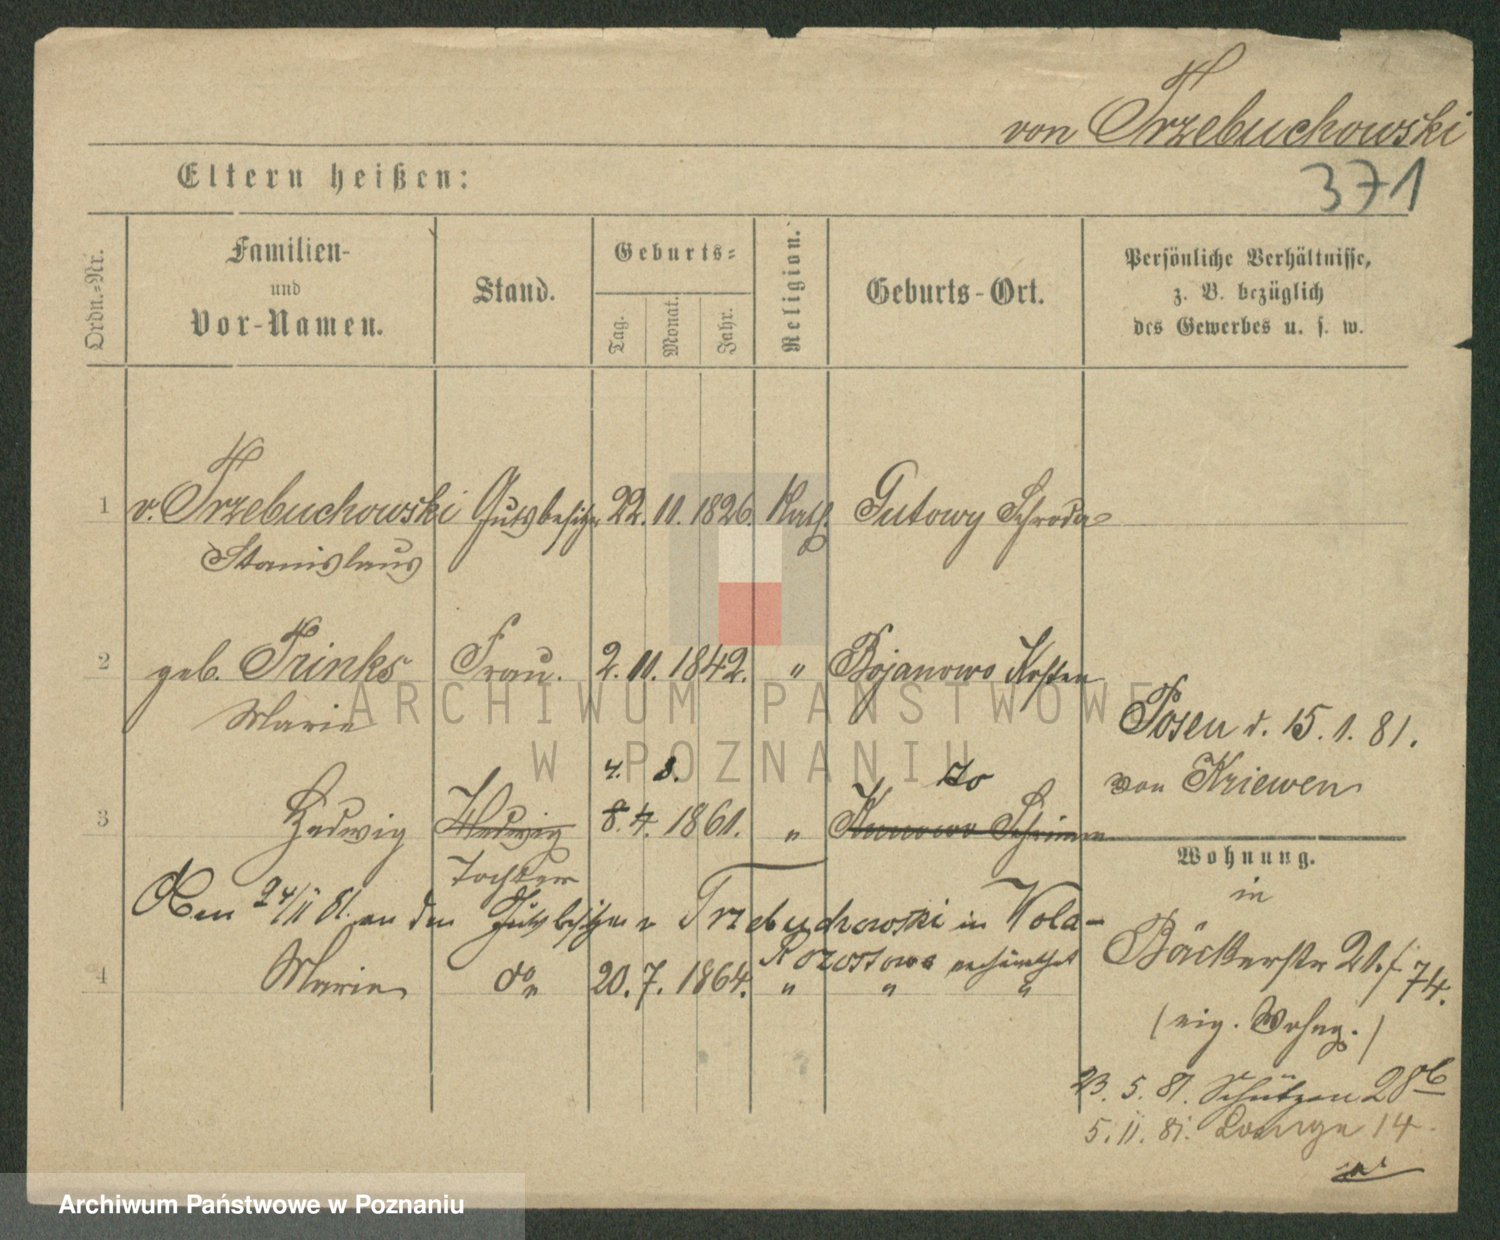 von Trzebuchowski
371
Eltern heißen:
Ordn.-Nr.
Familien-
und
Vor-Namen.
Stand.
Geburts-
Tag.
Monat.
Jahr.
Religion.
Geburts-Ort.
Persönliche Verhältnisse,
z. B. bezüglich
des Gewerbes u. s. w.
1 v. Trzebuchowski Gutsbesitzer 22. 11. 1826. Kath. Gutowy Schroda
Stanislaus
2 geb. Trinks Frau. 2. 11. 1842. " Bojanowo Kosten
Marie
Posen d. 15. 1. 81.
von Kriewen
4. 8. do
3 Hedwig Hedwig 8. 4. 1861. " Schrimm
Tochter
Wohnung.
in
Den 24/11 81. an den Gutsbesitzer v Trzebuchowski in Wola-
Bäckerstr 21. f. 74.
4 Marie do 20. 7. 1864. " " "
(eig. Wohng.)
23. 5. 81. Schützen 28b
5. 11. 81. Lange 14.
ARCHIWUM PAŃSTWOWE
W POZNANIU
Archiwum Państwowe w Poznaniu